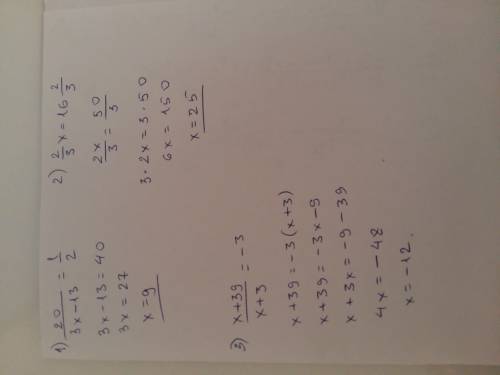 1) 20/(3x-13) = 1/2
3x-13=40
3x=27
x=9
2) 2/3 x = 16 2/3
2x/3 = 50/3
3·2x=3·50
6x=150
x=25
3) (x+39)/(x+3) = -3
x+39=-3(x+3)
x+39=-3x-9
x+3x=-9-39
4x=-48
x=-12.